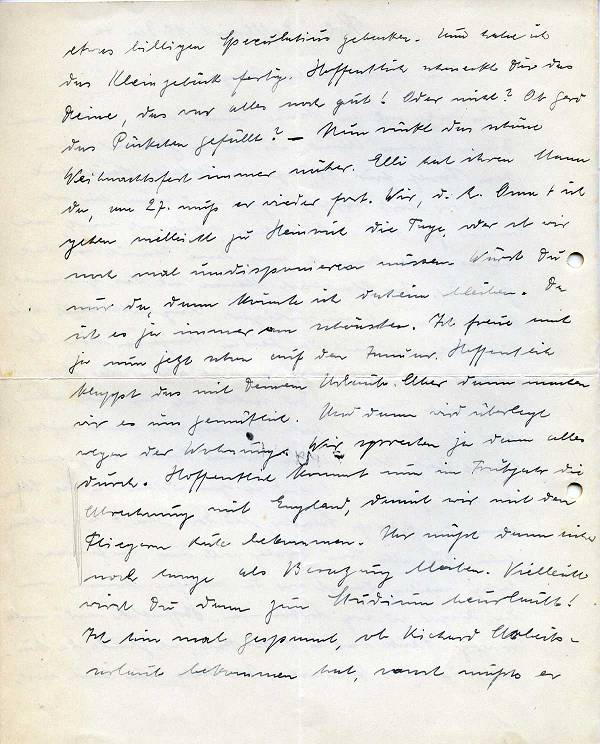 etwas billigen Speculatius gebacken. Und habe ich
das Kleingebäck fertig. Hoffentlich schmeckt Dir das
Deine, das war alles noch gut! Oder nicht? Ob Gerd
das Päckchen gefällt? – Nun rückt das schöne
Weihnachtsfest immer näher. Elli hat ihren Mann
da, am 27. muß er wieder fort. Wir, d. h. Oma + ich
gehen vielleicht zu Heinrich die Tage, oder ob wir
noch mal umdisponieren müssen. Wärst Du
nur da, dann könnte ich daheim bleiben. Da
ist es ja immer am schönsten. Ich freue mich
ja nun jetzt schon auf den Januar. Hoffentlich
klappt das mit Deinem Urlaub. Aber dann machen
wir es uns gemütlich. Und dann wird überlegt
wegen der Wohnung. Wir sprechen ja dann alles
durch. Hoffentlich kommt nun im Frühjahr die
Abrechnung mit England, damit wir mit den
Fliegern Ruhe bekommen. Ihr müßt dann sicher
noch lange als Besatzung bleiben. Vielleicht
wirst Du dann zum Studium beurlaubt!
Ich bin mal gespannt, ob Richard Arbeits-
urlaub bekommen hat, sonst müßte er